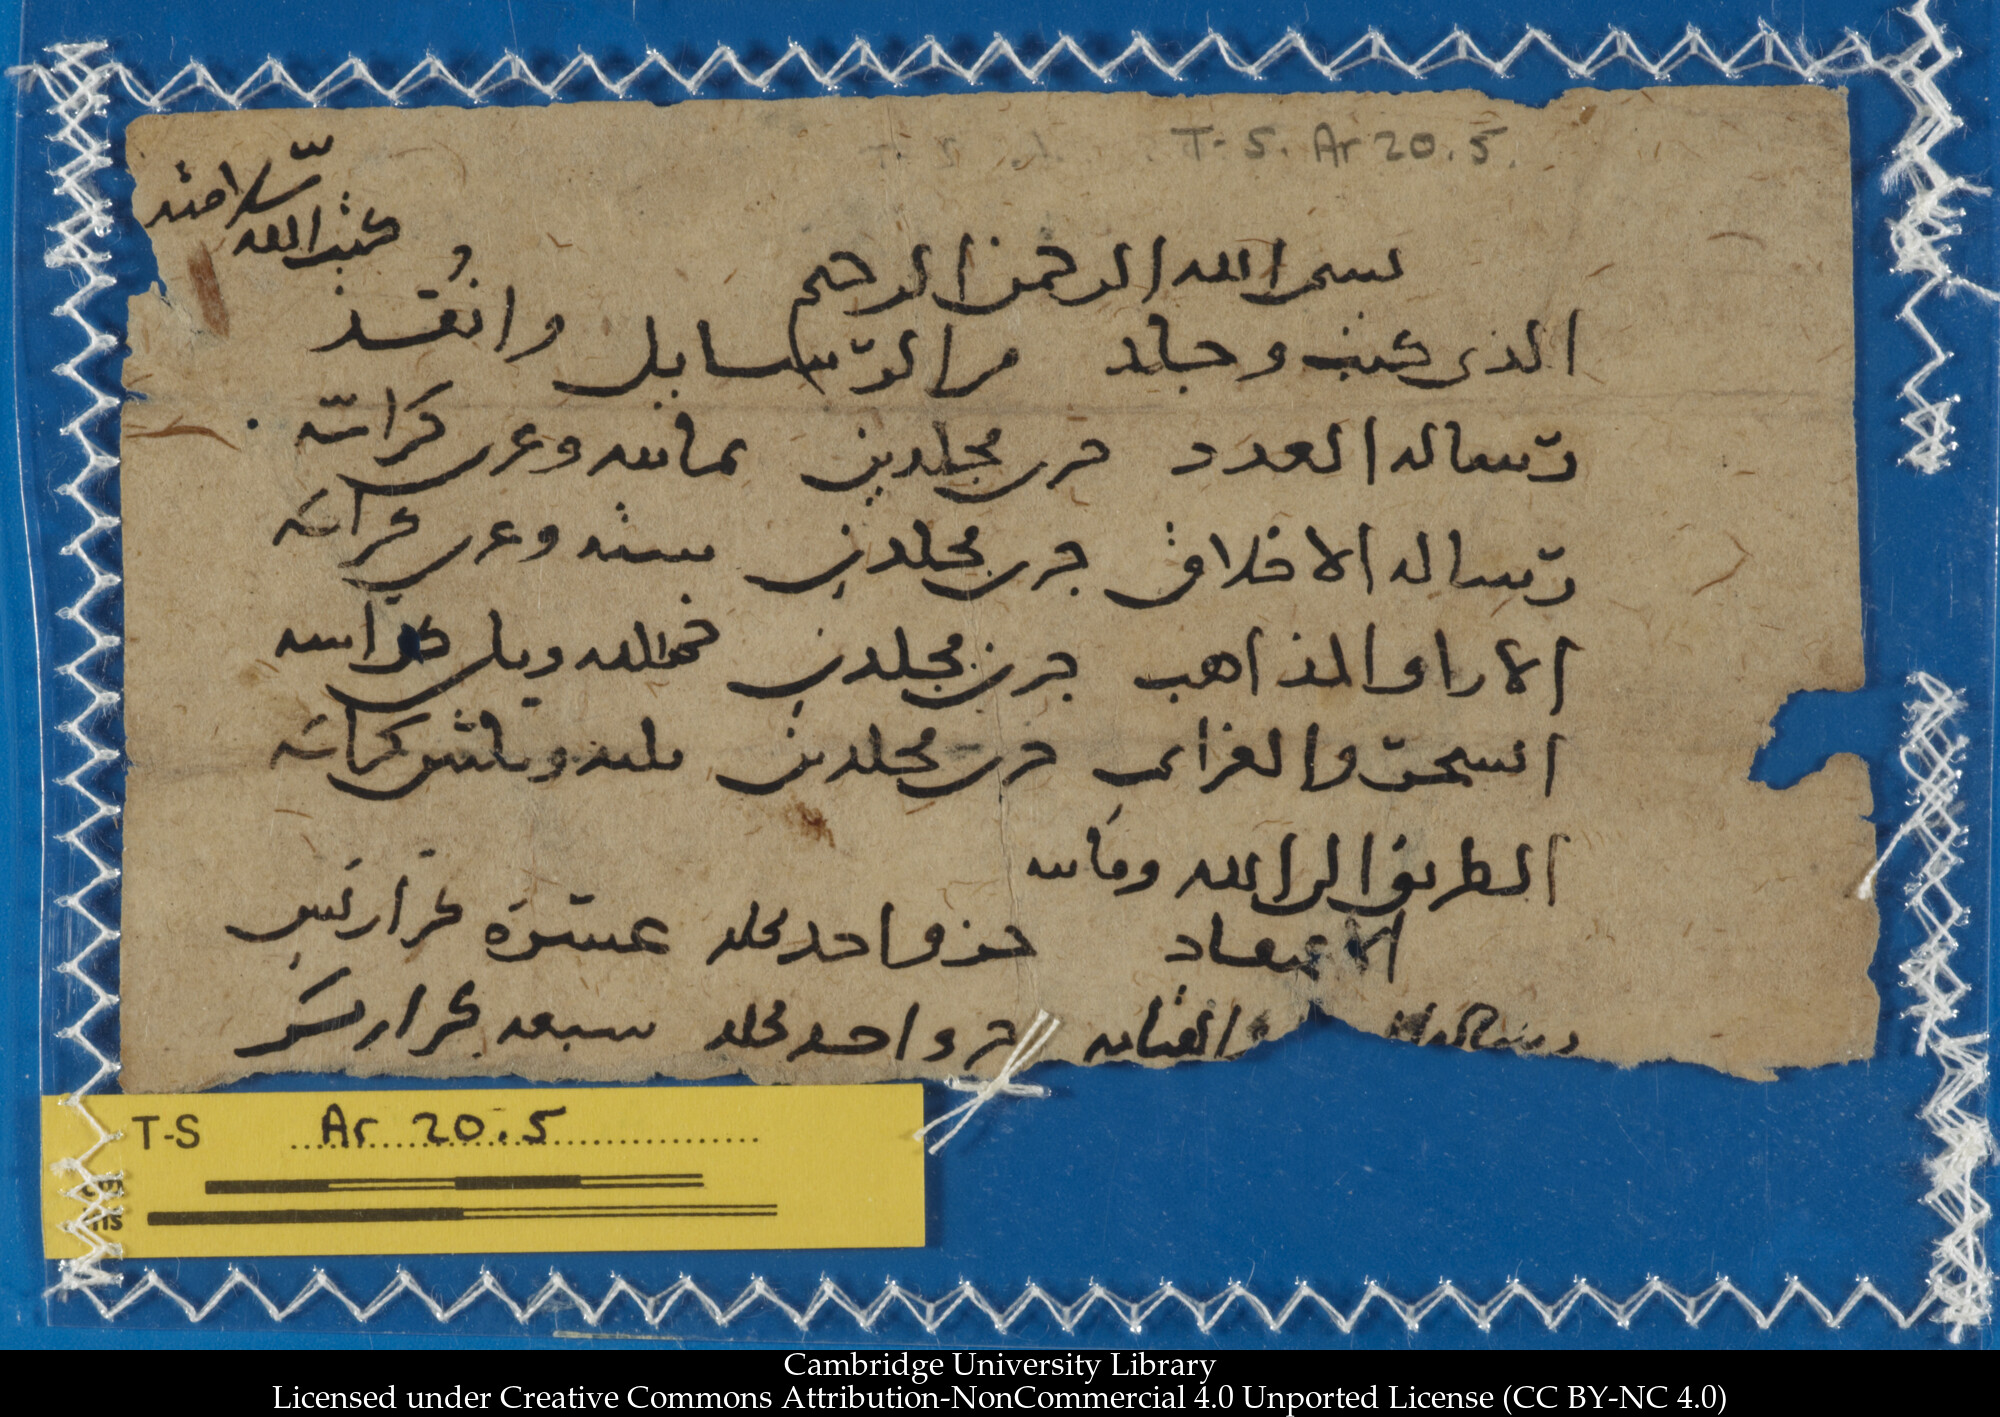 T-S. Ar 20.5.
كتب الله
سلامته
بسم الله الرحمن الرحيم
الذى كتب وجلد من الرسايل وانفذ
رساله العدد جزى مجلدين ثمانيه وعرى كراسه
رساله الاخلاق جزى مجلدين بسته وعرى كراسه
الارا والمذاهب جزين مجلدين وىلى كراسه
السحر والعزايم جزى مجلدين ىلىه وىلثىى كراسه
الطريق الى الله
جزو واحد مجلد عشرة كراريس
جزو واحد مجلد سبعه كراريس
T-S Ar 20.5
cms
Cambridge University Library
Licensed under Creative Commons Attribution-NonCommercial 4.0 Unported License (CC BY-NC 4.0)